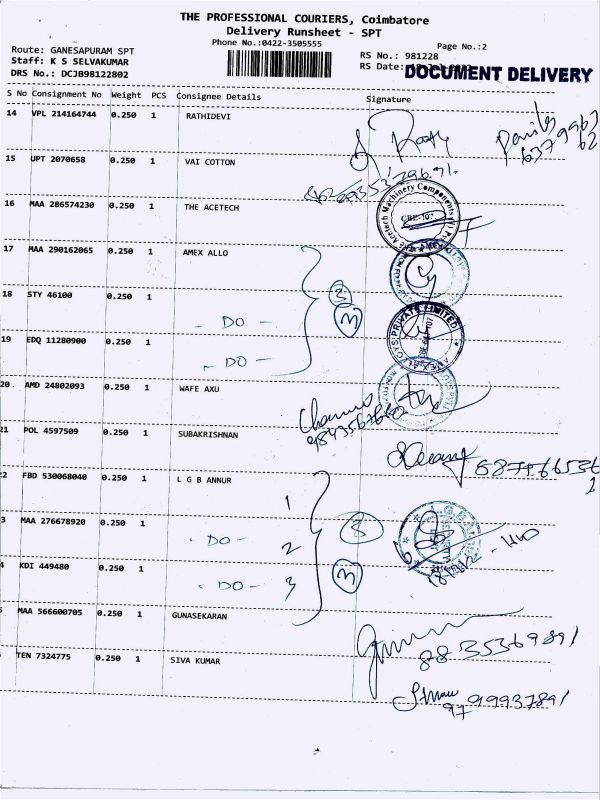 THE PROFESSIONAL COURIERS, Coimbatore
Delivery Runsheet - SPT
Phone No.:0422-3505555
Page No.:2
Route: GANESAPURAM SPT
Staff: K S SELVAKUMAR
DRS No.: DCJB98122802
RS No.: 981228
RS Date:
DOCUMENT DELIVERY
S No Consignment No Weight PCS Consignee Details Signature
14 VPL 214164744 0.250 1 RATHIDEVI
15 UPT 2070658 0.250 1 VAI COTTON
16 MAA 286574230 0.250 1 THE ACETECH
17 MAA 290162065 0.250 1 AMEX ALLO
18 STY 46100 0.250 1
- DO -
3
19 EDQ 11280900 0.250 1
- DO -
20 AMD 24802093 0.250 1 WAFE AXU
21 POL 4597509 0.250 1 SUBAKRISHNAN
2 FBD 530068040 0.250 1 L G B ANNUR
1
3 MAA 276678920 0.250 1
- DO - 2
3
4 KDI 449480 0.250 1
- DO - 3
MAA 566600705 0.250 1 GUNASEKARAN
TEN 7324775 0.250 1 SIVA KUMAR